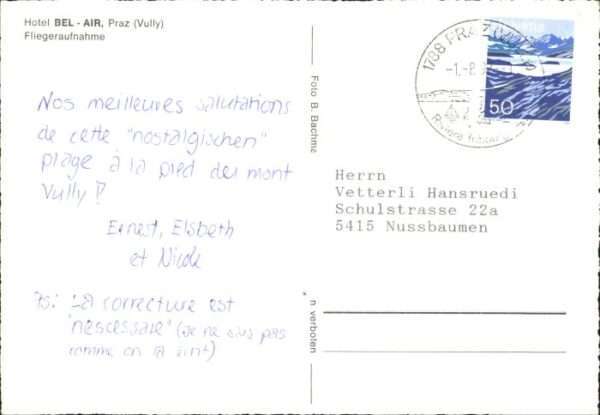 Hotel BEL - AIR, Praz (Vully)
Fliegeraufnahme
Nos meilleures salutations
de cette "nostalgischen"
plage à la pied du mont
Vully !
Ernest, Elsbeth
et Nicole
PS: La correcture est
"nescessaie" (Je ne suis pas
comme on
Foto B. Bachma
n verboten
1788 PRAZ (VULLY)
-1.-8.
Riviera fribourg
HELVETIA
50
Herrn
Vetterli Hansruedi
Schulstrasse 22a
5415 Nussbaumen